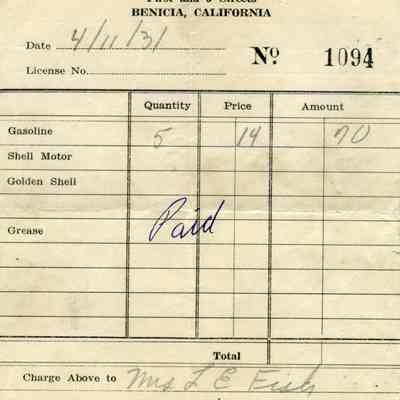 First and J Streets
BENICIA, CALIFORNIA
Date 4/11/31
No 1094
License No.
Quantity Price Amount
Gasoline 5 14 70
Shell Motor
Golden Shell
Paid
Grease
Total
Charge Above to Mrs L E Fish